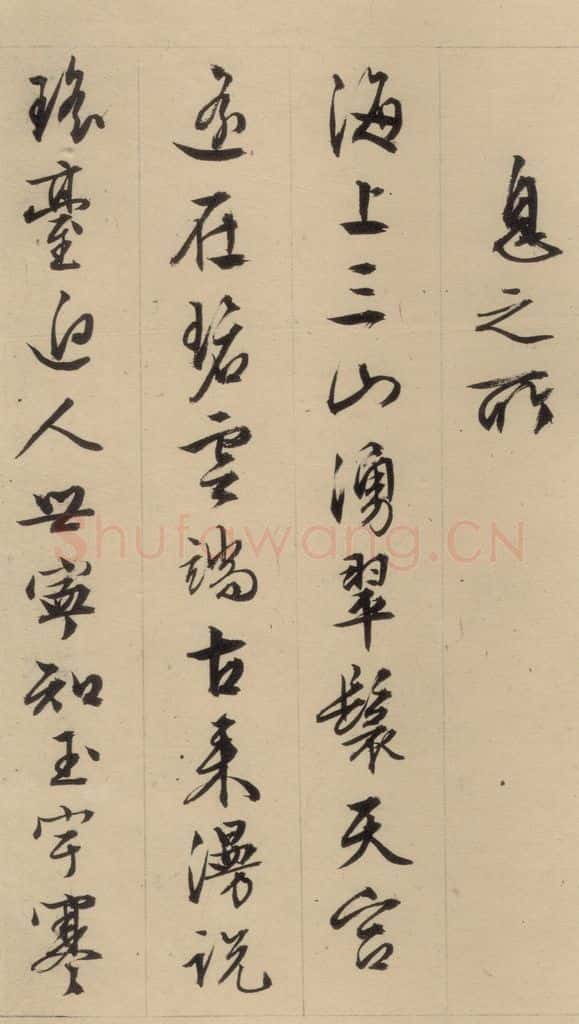 息之所
海上三山湧翠鬟天宮
遥在碧雲端古来漫説
瑤臺迥人世寧知玉宇寒
Shufawang.CN